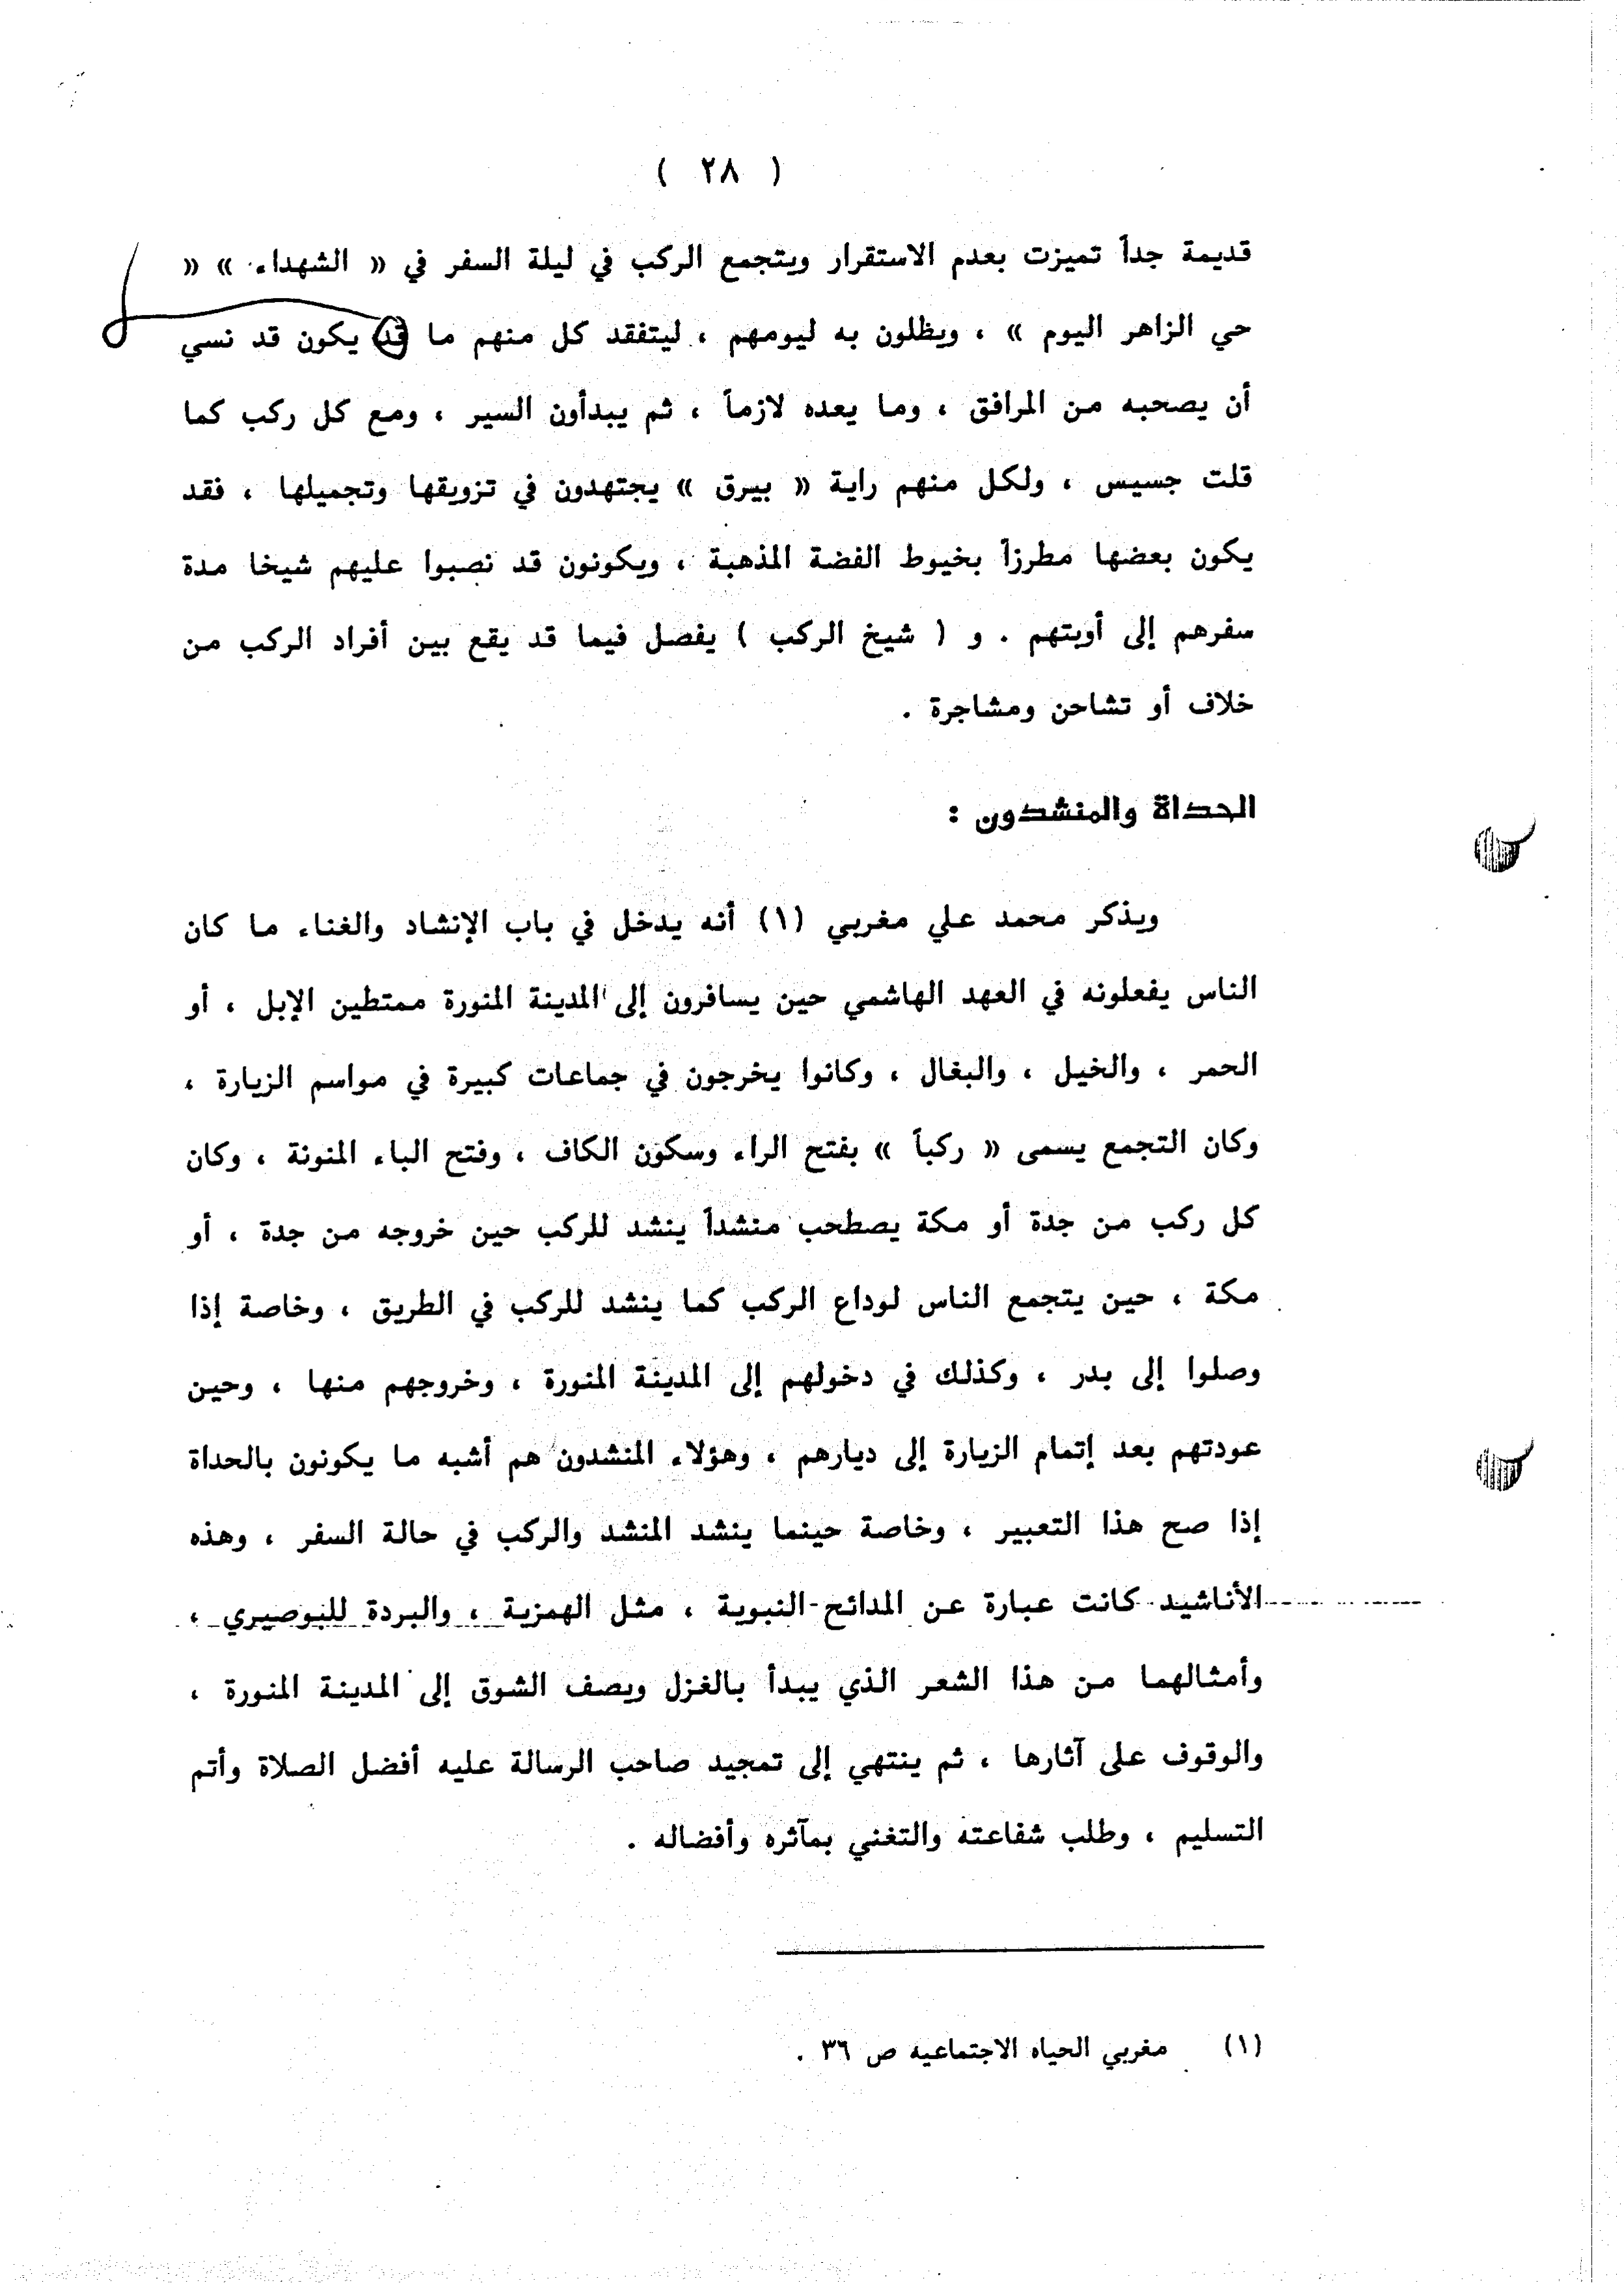 ( ٢٨ )
قديمة جداً تميزت بعدم الاستقرار ويتجمع الركب في ليلة السفر في « الشهداء » «
حي الزاهر اليوم » ، ويظلون به ليومهم ، ليتفقد كل منهم ما قد يكون قد نسي
أن يصحبه من المرافق ، وما يعده لازماً ، ثم يبدأون السير ، ومع كل ركب كما
قلت جسيس ، ولكل منهم راية « بيرق » يجتهدون في تزويقها وتجميلها ، فقد
يكون بعضها مطرزاً بخيوط الفضة المذهبة ، ويكونون قد نصبوا عليهم شيخا مدة
سفرهم إلى أوبتهم . و ( شيخ الركب ) يفصل فيما قد يقع بين أفراد الركب من
خلاف أو تشاحن ومشاجرة .
الحداة والمنشدون :
ويذكر محمد علي مغربي (١) أنه يدخل في باب الإنشاد والغناء ما كان
الناس يفعلونه في العهد الهاشمي حين يسافرون إلى المدينة المنورة ممتطين الإبل ، أو
الحمر ، والخيل ، والبغال ، وكانوا يخرجون في جماعات كبيرة في مواسم الزيارة ،
وكان التجمع يسمى « ركباً » بفتح الراء وسكون الكاف ، وفتح الباء المنونة ، وكان
كل ركب من جدة أو مكة يصطحب منشداً ينشد للركب حين خروجه من جدة ، أو
مكة ، حين يتجمع الناس لوداع الركب كما ينشد للركب في الطريق ، وخاصة إذا
وصلوا إلى بدر ، وكذلك في دخولهم إلى المدينة المنورة ، وخروجهم منها ، وحين
عودتهم بعد إتمام الزيارة إلى ديارهم ، وهؤلاء المنشدون هم أشبه ما يكونون بالحداة
إذا صح هذا التعبير ، وخاصة حينما ينشد المنشد والركب في حالة السفر ، وهذه
الأناشيد كانت عبارة عن المدائح النبوية ، مثل الهمزية ، والبردة للبوصيري ،
وأمثالهما من هذا الشعر الذي يبدأ بالغزل ويصف الشوق إلى المدينة المنورة ،
والوقوف على آثارها ، ثم ينتهي إلى تمجيد صاحب الرسالة عليه أفضل الصلاة وأتم
التسليم ، وطلب شفاعته والتغني بمآثره وأفضاله .
(١) مغربي الحياه الاجتماعيه ص ٣٦ .